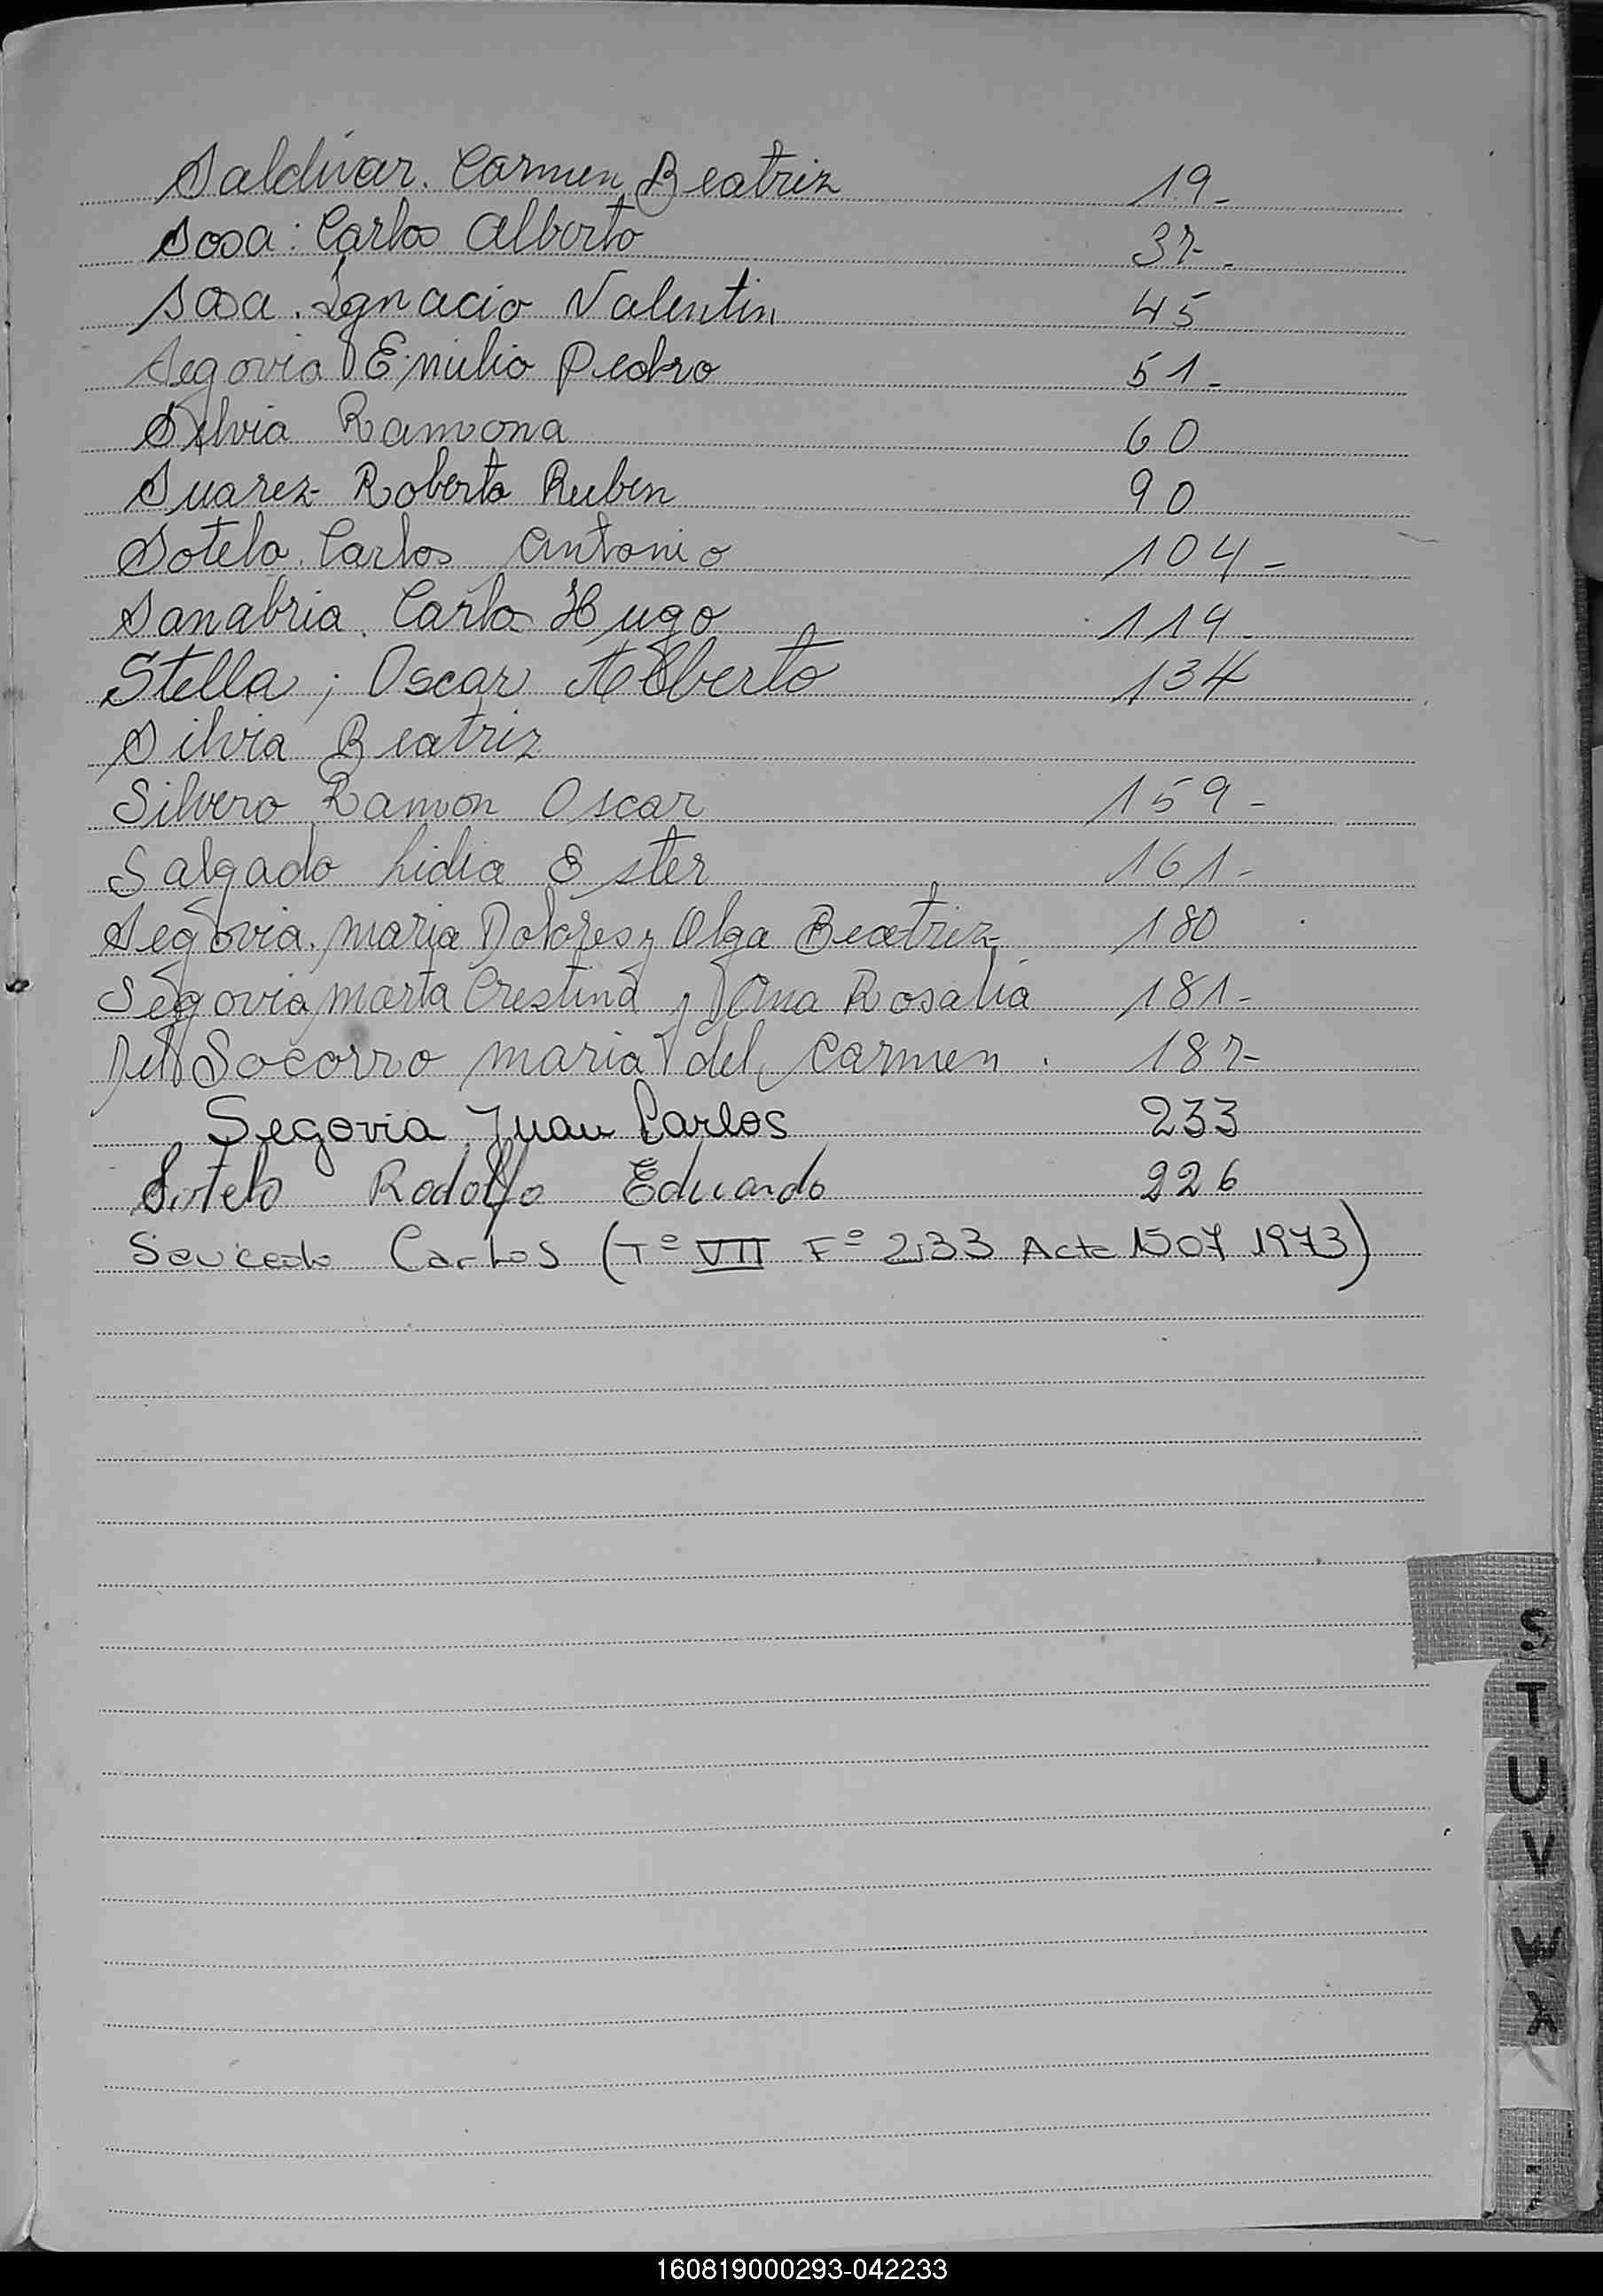 Saldívar. Carmen Beatriz 19-
Sosa: Carlos Alberto 32-
Sosa. Ignacio Valentin 45
Segovia Emilio Pedro 51-
Silvia Ramona 60
Suarez Roberto Ruben 90
Sotelo. Carlos Antonio 104-
Sanabria. Carlos Hugo 114-
Stella; Oscar Alberto 134
Silvia Beatriz
Silvero Ramon Oscar 159-
Salgado Lidia Ester 161-
Segovia. Maria Dolores y Olga Beatriz 180
Segovia Marta Crestina y Ana Rosalia 181-
Del Socorro Maria del Carmen. 182-
Segovia, Juan Carlos 233
Sotelo Rodolfo Eduardo 226
Saucedo Carlos (Tº VII Fº 233 Acta 1507 1973)
S
T
U
V
W
X
160819000293-042233